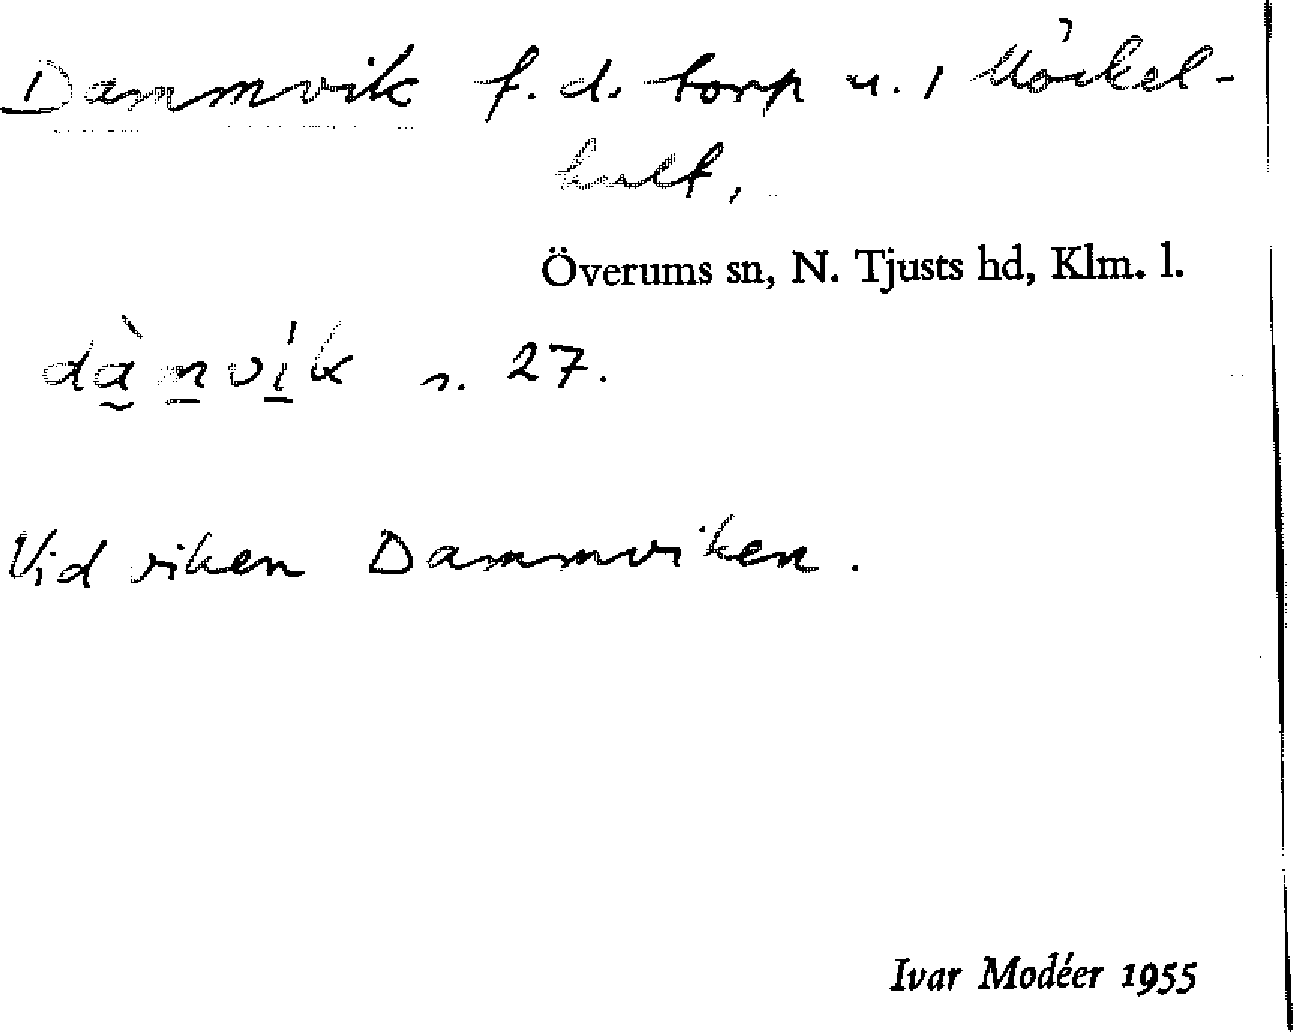 Dammvik f. d. torp u. 1 Möckel-
hult.
Överums sn, N. Tjusts hd, Klm. l.
dànvík s. 27.
Vid viken Dammviken.
Ivar Modéer 1955